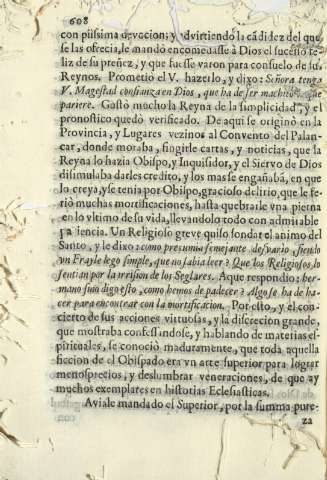 608
con pijssima devocion: y advirtiendo la cãdidez del que
se las ofrecia, le mandò encomedasse à Dios el sucesso fe-
liz de su preñez, y que fuesse varon para consuelo de sus
Reynos. Prometiò el V. hazerlo, y dixo: Señora tenga
V. Magestad confiança en Dios, que ha de ser machito lo que
pariere. Gustò mucho la Reyna de la simplicidad, y el
pronostico quedò verificado. De aqui se originò en la
Provincia, y Lugares vezinos al Convento del Palan-
car, donde moraba, fingirle cartas, y noticias, que la
Reyna lo hazia Obispo, y Inquisidor, y el Siervo de Dios
disimulaba darles credito, y los mas se engañaba, en que
lo creya, y se tenia por Obispo, gracioso delirio, que le fe-
riò muchas mortificaciones, hasta quebrarle vna pierna
en lo vltimo de su vida, llevandolo todo con admirable
paciencia. Vn Religioso greve quiso fondar el animo del
Santo, y le dixo: como presumia semejante desvario, siendo
vn Frayle lego simple, que no sabia leer? Que los Religiosos lo
sentian por la irrision de los Seglares. A que respondiò: her-
mano sino digo esto, como hemos de padecer? Algo se ha de ha-
cer para encontrar con la mortificacion. Por esto, y el con-
cierto de sus acciones virtuosas, y la discrecion grande,
que mostraba confessandose, y hablando de materias es-
pirituales, se conociò maduramente, que toda aquella
ficcion de el Obispado era vn arte superior para lograr
menosprecios, y deslumbrar veneraciones, de que ay
muchos exemplares en historias Eclesiasticas.
Aviale mandado el Superior, por la summa pure-
za